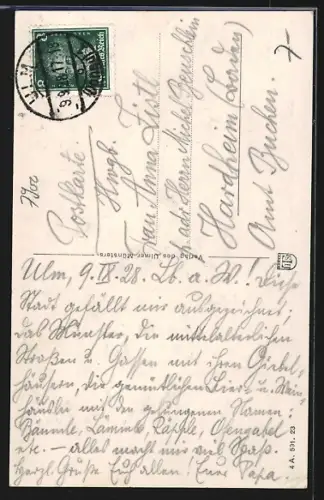 ULM
Deutsches Reich
7-
7300
Postkarte.
Frau Anna Eistl
p. adr. Herrn Michl Beuschlein
Hardheim (Baden)
Amt Buchen.
Verlag des Ulmer Münsters
Ulm, 9.IX.28. Lb. a. W.! Diese
Stadt gefällt mir ausgezeichnet:
das Münster, die mittelalterlichen
Straßen u. Gassen mit ihren Giebel-
häusern, die gemütlichen Bier- u. Wein-
häusle mit den gelungenen Namen:
Bäumle, Lämmle, Räpple, Ofengabel
etc. – alles macht mir viel Spaß.
Herzl. Grüße Euch allen! Euer Papa.
4 A. 531. 23